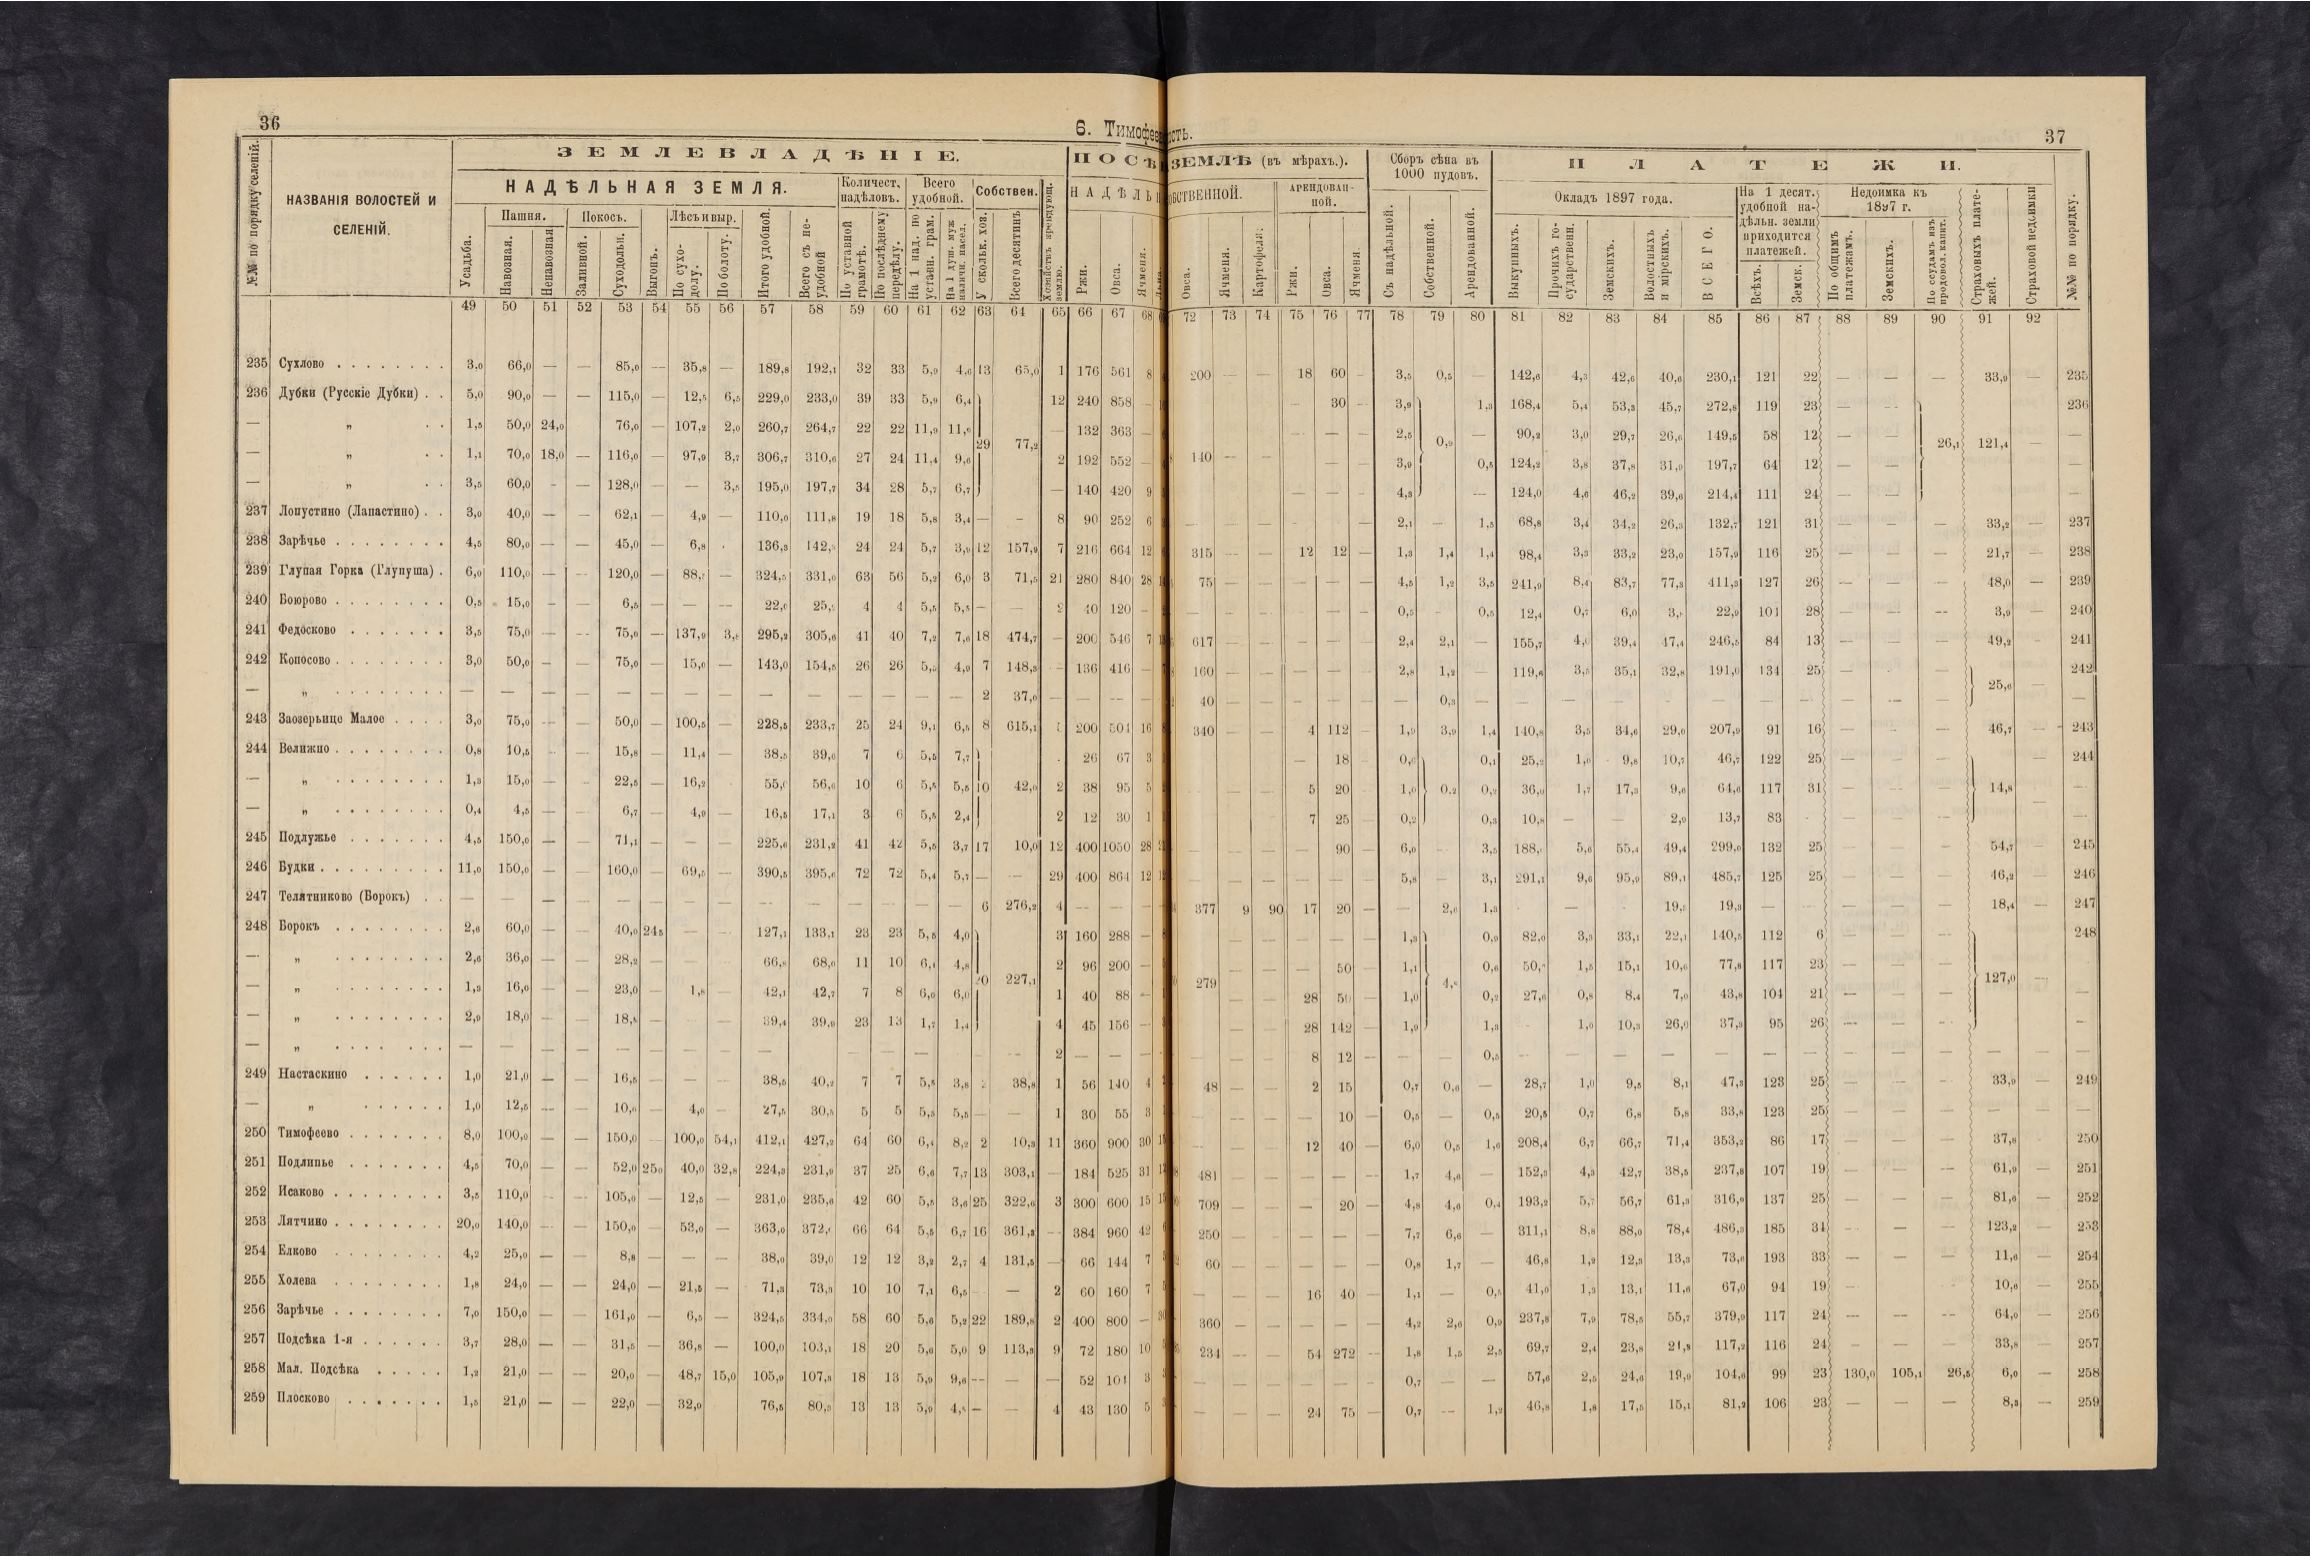 36
6. Тимофее
ость.
37
№№ по порядку селеній.
НАЗВАНІЯ ВОЛОСТЕЙ И СЕЛЕНІЙ.
ЗЕМЛЕВЛАДѢНІЕ.
НАДѢЛЬНАЯ ЗЕМЛЯ.
Количест. надѣловъ.
Всего удобной.
Собствен.
Хозяйствъ арендующ. землю.
Пашня.
Покосъ.
Лѣсъ и выр.
Усадьба.
Навозная.
Ненавозная
Заливной.
Суходольн.
Выгонъ.
По сухо-долу.
По болоту.
Итого удобной.
Всего съ не-удобной
По уставной грамотѣ.
По послѣднему передѣлу.
На 1 над. по уставн. грам.
На 1 душ. муж. наличн. насел.
У скольк. хоз.
Всего десятинъ
ПОСѢ
ЗЕМЛѢ (въ мѣрахъ.).
НАДѢЛЬН
ОБСТВЕННОЙ.
АРЕНДОВАН-НОЙ.
Ржи.
Овса.
Ячменя.
Овса.
Ячменя.
Картофеля.
Ржи.
Овса.
Ячменя
Сборъ сѣна въ 1000 пудовъ.
Съ надѣльной.
Собственной.
Арендованной.
ПЛАТЕЖИ.
Окладъ 1897 года.
На 1 десят. удобной на-дѣльн. земли приходится платежей.
Недоимка къ 1897 г.
Выкупныхъ.
Прочихъ го-сударственн.
Земскихъ.
Волостныхъ и мірскихъ.
ВСЕГО.
Всѣхъ.
Земск.
По общимъ платежамъ.
Земскихъ.
По ссудамъ изъ продовол. капит.
Страховыхъ плате-жей.
Страховой недоимки
№№ по порядку.
49 50 51 52 53 54 55 56 57 58 59 60 61 62 63 64 65 66 67 68
72 73 74 75 76 77 78 79 80 81 82 83 84 85 86 87 88 89 90 91 92
235 Сухлово 3,0 66,0 — — 85,0 — 35,8 — 189,8 192,1 32 33 5,9 4,6 13 65,0 1 176 561 8
200 — — 18 60 - 3,5 0,5 — 142,6 4,3 42,6 40,6 230,1 121 22 — — — 33,9 — 235
236 Дубки (Русскіе Дубки) 5,0 90,0 — — 115,0 — 12,5 6,5 229,0 233,0 39 33 5,9 6,4 12 240 858 —
30 3,9 1,3 168,4 5,4 53,3 45,7 272,8 119 23 — 236
— „ 1,5 50,0 24,0 76,0 — 107,2 2,0 260,7 264,7 22 22 11,9 29 77,2 — 132 363 —
— — — 2,5 0,9 — 90,2 3,0 29,7 26,6 149,5 58 12 — — 26,1 121,4 — —
— „ 1,1 70,0 18,0 — 116,0 — 97,9 3,7 306,7 310,6 27 24 11,4 9,6 2 192 552 —
140 — — — — 3,9 0,5 124,2 3,8 37,8 31,9 197,7 64 12 — — —
— „ 3,5 60,0 - — 128,0 — — 3,5 195,0 197,7 34 28 5,7 6,7 — 140 420 9
— — — 4,3 — 124,0 4,6 46,2 39,6 214,4 111 24 — — —
237 Лопустино (Лапастино) 3,0 40,0 — — 62,1 — 4,9 — 110,0 111,8 19 18 5,8 3,4 — - 8 90 252 6
— — — — — 2,1 — 1,5 68,8 3,4 34,2 26,3 132,7 121 31 — — — 33,2 — 237
238 Зарѣчье 4,5 80,0 — — 45,0 — 6,8 136,3 24 24 5,7 3,9 12 157,9 7 216 664 12
315 — — 12 12 — 1,3 1,4 1,4 98,4 3,3 33,2 23,0 157,9 116 25 — — — 21,7 — 238
239 Глупая Горка (Глупуша) 6,0 110,0 — 120,0 — — 324,5 331,0 63 56 5,2 6,0 3 71,5 21 280 840 28
75 — — — — — 4,5 1,2 3,5 241,9 8,4 83,7 77,3 411,3 127 26 — — — 48,0 — 239
240 Боюрово 0,5 15,0 — — 6,5 — — — 22,0 4 4 5,5 5,5 — — 2 40 120 -
0,5 - 0,5 12,4 0,7 6,0 22,9 104 28 — — — 3,9 — 240
241 Федосково 3,5 75,0 — — 75,0 — 137,9 295,2 305,6 41 40 7,2 7,6 18 474,7 — 200 546 7
617 — — — — — 2,4 2,1 — 155,7 39,4 47,4 246,5 84 13 — — — 49,2 - 241
242 Копосово 3,0 50,0 — — 75,0 — 15,0 — 143,0 154,5 26 26 4,9 7 148,3 — 136 416 —
160 — — — — — 2,8 1,2 — 119,6 3,5 35,1 32,8 191,0 134 25 — — — 242
— „ — — — — — — — — — — — — — — 2 37,0 — — — —
40 — — — — — 0,3 — — — — — — — — — — 25,6 — —
243 Заозерьице Малое 3,0 75,0 — 50,0 — 100,5 — 228,5 233,7 25 24 9,1 6,5 8 615,1 200 504 16
340 — — 4 112 — 1,9 3,9 1,4 140,8 3,5 34,6 29,0 207,9 91 16 — — — 46,7 — 243
244 Велижно 0,8 10,5 — 15,8 — 11,4 — 38,5 39,6 7 6 5,5 7,7 26 67 3
— 18 0,1 25,2 1,0 9,8 10,7 46,7 122 25 — — — 244
— „ 1,3 15,0 22,5 — 16,2 56,6 10 6 5,5 5,5 10 42,0 2 38 95 5
5 20 1,0 0,2 0,2 36,0 1,7 17,3 9,6 64,6 117 31 — — — 14,8 —
— „ 0,4 4,5 6,7 — 4,9 — 16,5 17,1 3 6 5,5 2,4 2 12 30 1
7 25 — 0,2 0,3 10,8 — — 2,9 13,7 83 - — — —
245 Подлужье 4,5 150,0 — — 71,1 — — — 225,6 231,2 41 42 5,5 3,7 17 10,0 12 400 1050 28
— — — 90 6,0 3,5 5,6 55,4 49,4 299,0 132 25 — — — 54,7 — 245
246 Будки 11,0 150,0 — — 160,0 — 69,5 — 390,5 395,6 72 72 5,4 5,7 — — 29 400 864 12
— — — — — 5,8 — 3,1 291,1 9,6 95,9 89,1 485,7 125 25 — — — 46,2 — 246
247 Телятниково (Борокъ) — — — — — — — — — — — — — — 6 276,2 4 — — —
377 9 90 17 20 — — 1,3 — — 19,3 19,3 — — — — 18,4 — 247
248 Борокъ 2,6 60,0 — — 40,0 24,5 — — 127,1 133,1 23 23 5,5 4,0 3 160 288 —
— — — — — 1,3 0,9 82,0 3,3 33,1 22,1 140,5 112 6 — — — 248
— „ 2,6 36,0 — — 28,2 — — 66,8 68,0 11 10 4,8 2 96 200 —
— — — 50 — 1,1 0,6 1,5 15,1 10,6 77,8 117 23 — — —
— „ 1,3 16,0 — — 23,0 — 1,8 — 42,1 42,7 7 8 6,0 6,0 20 227,1 1 40 88 —
279 28 50 — 1,0 0,2 27,6 0,8 8,4 7,0 43,8 104 21 — — — 127,0 —
— „ 2,9 18,0 — — 18,5 — 39,4 39,9 23 13 1,7 1,4 4 45 156 —
— — 28 142 — 1,9 1,3 - 1,0 10,3 26,0 37,3 95 26 — — —
— „ — — — — — — — — — — — — 2 — — —
— — — 8 12 — — — 0,5 — — — — — — — — — — — — —
249 Настаскино 1,0 21,0 — — 16,5 — — — 38,5 40,2 7 7 5,5 3,8 38,8 1 56 140 4
48 — — 2 15 0,7 0,6 — 28,7 1,0 9,5 8,1 47,3 123 25 — — — 33,9 — 249
— „ 1,0 12,5 — — — 4,0 — 27,5 30,5 5 5 5,5 5,5 — — 1 30 55 3
— — — 10 0,5 — 0,5 20,5 0,7 6,8 5,8 33,8 123 25 — — — — — —
250 Тимофеево 8,0 100,0 — — 150,0 — 100,0 54,1 412,1 427,2 64 60 6,4 8,2 2 10,3 11 360 900 30
— — — 12 40 — 6,0 0,5 1,6 208,4 6,7 66,7 71,4 353,2 86 17 — — — 37,8 — 250
251 Подлипье 4,5 70,0 — — 52,0 25,0 40,0 32,8 224,3 231,9 37 25 6,6 7,7 13 303,1 — 184 525 31
481 — — — — — 1,7 4,6 — 152,3 4,3 42,7 38,5 237,8 107 19 — — — 61,9 — 251
252 Исаково 3,5 110,0 — — 105,0 — 12,5 — 231,0 235,6 42 60 5,5 3,6 25 322,6 3 300 600 15
709 — — — 20 — 4,8 4,6 0,4 193,2 5,7 56,7 61,3 316,9 137 25 — — — 81,6 — 252
253 Лятчино 20,0 140,0 — — 150,0 — 53,0 — 363,0 66 64 5,5 6,7 16 361,3 — 384 960 42
250 — — — — — 7,7 6,6 — 311,1 8,8 88,0 78,4 486,3 185 34 — — — 123,2 — 253
254 Елково 4,2 25,0 — — 8,8 — — — 38,0 39,0 12 12 3,2 2,7 4 131,5 — 66 144 7
60 — — — — — 0,8 1,7 — 46,8 1,2 12,3 13,3 73,6 193 33 — — — 11,6 — 254
255 Холева 1,8 24,0 — — 24,0 — 21,5 — 71,3 73,3 10 10 7,1 6,5 — — 2 60 160 7
— — — 16 40 — 1,1 — 0,5 41,0 1,3 13,1 11,6 67,0 94 19 — — — 10,6 — 255
256 Зарѣчье 7,0 150,0 — — 161,0 — 6,5 — 324,5 334,0 58 60 5,6 5,2 22 189,8 2 400 800 —
360 — — — — — 4,2 2,6 0,9 237,8 7,9 78,5 55,7 379,9 117 24 — — — 64,0 — 256
257 Подсѣка 1-я 3,7 28,0 — — 31,5 — 36,8 — 100,0 103,1 18 20 5,6 5,0 9 113,3 9 72 180 10
234 — — 54 272 — 1,8 1,5 2,5 69,7 2,4 23,8 21,3 117,2 116 24 — — — 33,8 — 257
258 Мал. Подсѣка 1,2 21,0 — — 20,0 — 48,7 15,0 105,9 107,8 18 13 5,9 9,6 — — — 52 104 3
— — — — — 0,7 — — 57,6 2,5 24,6 19,9 104,6 99 23 130,0 105,1 26,5 6,0 — 258
259 Плосково 1,5 21,0 — — 22,0 — 32,0 76,5 80,3 13 13 5,9 — — 4 43 130 5
— — — 24 75 — 0,7 — 1,2 46,8 1,8 17,5 15,1 81,2 106 23 — — — 8,3 — 259